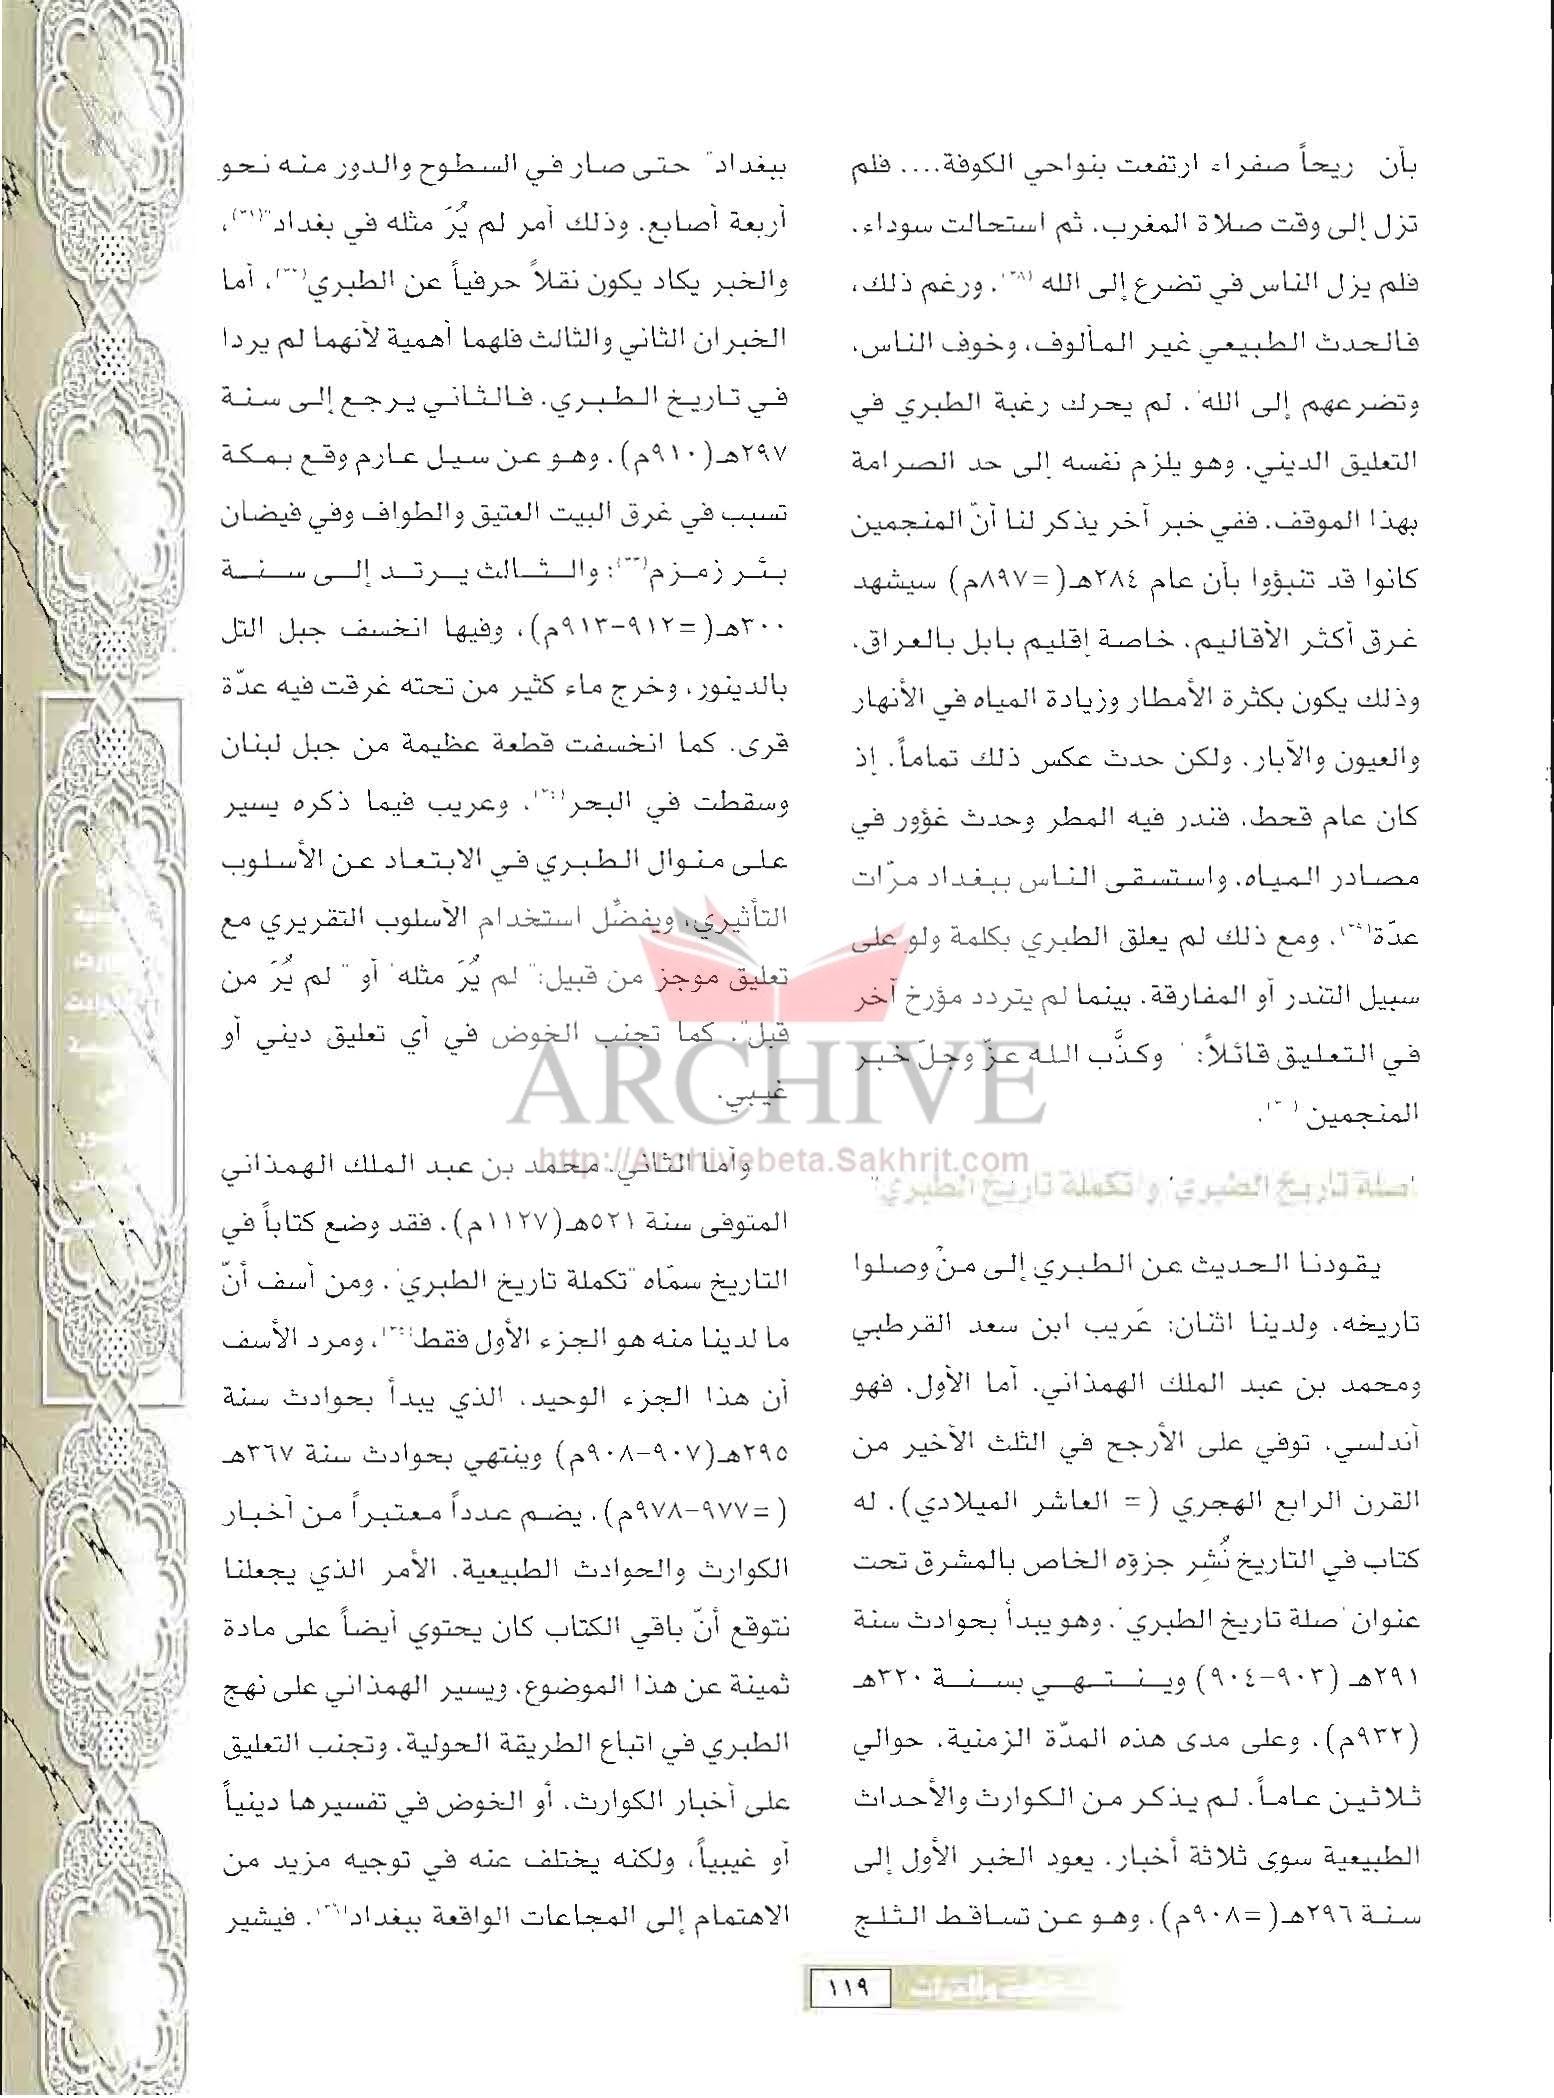 بأن ريحاً صفراء ارتفعت بنواحي الكوفة.... فلم
تزل إلى وقت صلاة المغرب، ثم استحالت سوداء،
فلم يزل الناس في تضرع إلى الله"(٢٨). ورغم ذلك،
فالحدث الطبيعي غير المألوف، وخوف الناس،
وتضرعهم إلى الله"، لم يحرك رغبة الطبري في
التعليق الديني. وهو يلزم نفسه إلى حد الصرامة
بهذا الموقف. ففي خبر آخر يذكر لنا أنّ المنجمين
كانوا قد تنبؤوا بأن عام ٢٨٤هـ(=٨٩٧م) سيشهد
غرق أكثر الأقاليم، خاصة إقليم بابل بالعراق،
وذلك يكون بكثرة الأمطار وزيادة المياه في الأنهار
والعيون والآبار. ولكن حدث عكس ذلك تماماً. إذ
كان عام قحط، فندر فيه المطر وحدث غؤور في
مصادر المياه، واستسقى الناس ببغداد مرّات
عدّة(٢٩). ومع ذلك لم يعلق الطبري بكلمة ولو على
سبيل التندر أو المفارقة. بينما لم يتردد مؤرخ آخر
في التعليق قائلاً: " وكذَّب الله عزّ وجلّ خبر
المنجمين"(٣٠).
"صلة تاريخ الطبري" و"تكملة تاريخ الطبري"
يقودنا الحديث عن الطبري إلى منْ وصلوا
تاريخه، ولدينا اثنان: عَريب ابن سعد القرطبي
ومحمد بن عبد الملك الهمذاني. أما الأول، فهو
أندلسي، توفي على الأرجح في الثلث الأخير من
القرن الرابع الهجري (= العاشر الميلادي). له
كتاب في التاريخ نُشِر جزؤه الخاص بالمشرق تحت
عنوان "صلة تاريخ الطبري". وهو يبدأ بحوادث سنة
٢٩١هـ (٩٠٣-٩٠٤) وينتهي بسنة ٣٢٠هـ
(٩٣٢م). وعلى مدى هذه المدّة الزمنية، حوالي
ثلاثين عاماً، لم يذكر من الكوارث والأحداث
الطبيعية سوى ثلاثة أخبار. يعود الخبر الأول إلى
سنة ٢٩٦هـ(=٩٠٨م)، وهو عن تساقط الثلج
ببغداد" حتى صار في السطوح والدور منه نحو
أربعة أصابع، وذلك أمر لم يُرَ مثله في بغداد"(٣١)،
والخبر يكاد يكون نقلاً حرفياً عن الطبري(٣٢)، أما
الخبران الثاني والثالث فلهما أهمية لأنهما لم يردا
في تاريخ الطبري. فالثاني يرجع إلى سنة
٢٩٧هـ(٩١٠م)، وهو عن سيل عارم وقع بمكة
تسبب في غرق البيت العتيق والطواف وفي فيضان
بئر زمزم(٣٣)؛ والثالث يرتد إلى سنة
٣٠٠هـ(=٩١٢-٩١٣م)، وفيها انخسف جبل التل
بالدينور، وخرج ماء كثير من تحته غرقت فيه عدّة
قرى. كما انخسفت قطعة عظيمة من جبل لبنان
وسقطت في البحر(٣٤). وعريب فيما ذكره يسير
على منوال الطبري في الابتعاد عن الأسلوب
التأثيري، ويفضّل استخدام الأسلوب التقريري مع
تعليق موجز من قبيل:" لم يُرَ مثله" أو " لم يُرَ من
قبل". كما تجنب الخوض في أي تعليق ديني أو
غيبي.
وأما الثاني، محمد بن عبد الملك الهمذاني
المتوفى سنة ٥٢١هـ(١١٢٧م)، فقد وضع كتاباً في
التاريخ سمّاه "تكملة تاريخ الطبري". ومن أسف أنّ
ما لدينا منه هو الجزء الأول فقط(٣٥)، ومرد الأسف
أن هذا الجزء الوحيد، الذي يبدأ بحوادث سنة
٢٩٥هـ(٩٠٧-٩٠٨م) وينتهي بحوادث سنة ٣٦٧هـ
(=٩٧٧-٩٧٨م)، يضم عدداً معتبراً من أخبار
الكوارث والحوادث الطبيعية. الأمر الذي يجعلنا
نتوقع أنّ باقي الكتاب كان يحتوي أيضاً على مادة
ثمينة عن هذا الموضوع. ويسير الهمذاني على نهج
الطبري في اتباع الطريقة الحولية، وتجنب التعليق
على أخبار الكوارث، أو الخوض في تفسيرها دينياً
أو غيبياً، ولكنه يختلف عنه في توجيه مزيد من
الاهتمام إلى المجاعات الواقعة ببغداد(٣٦). فيشير
١١٩
ARCHIVE
http://Archivebeta.Sakhrit.com